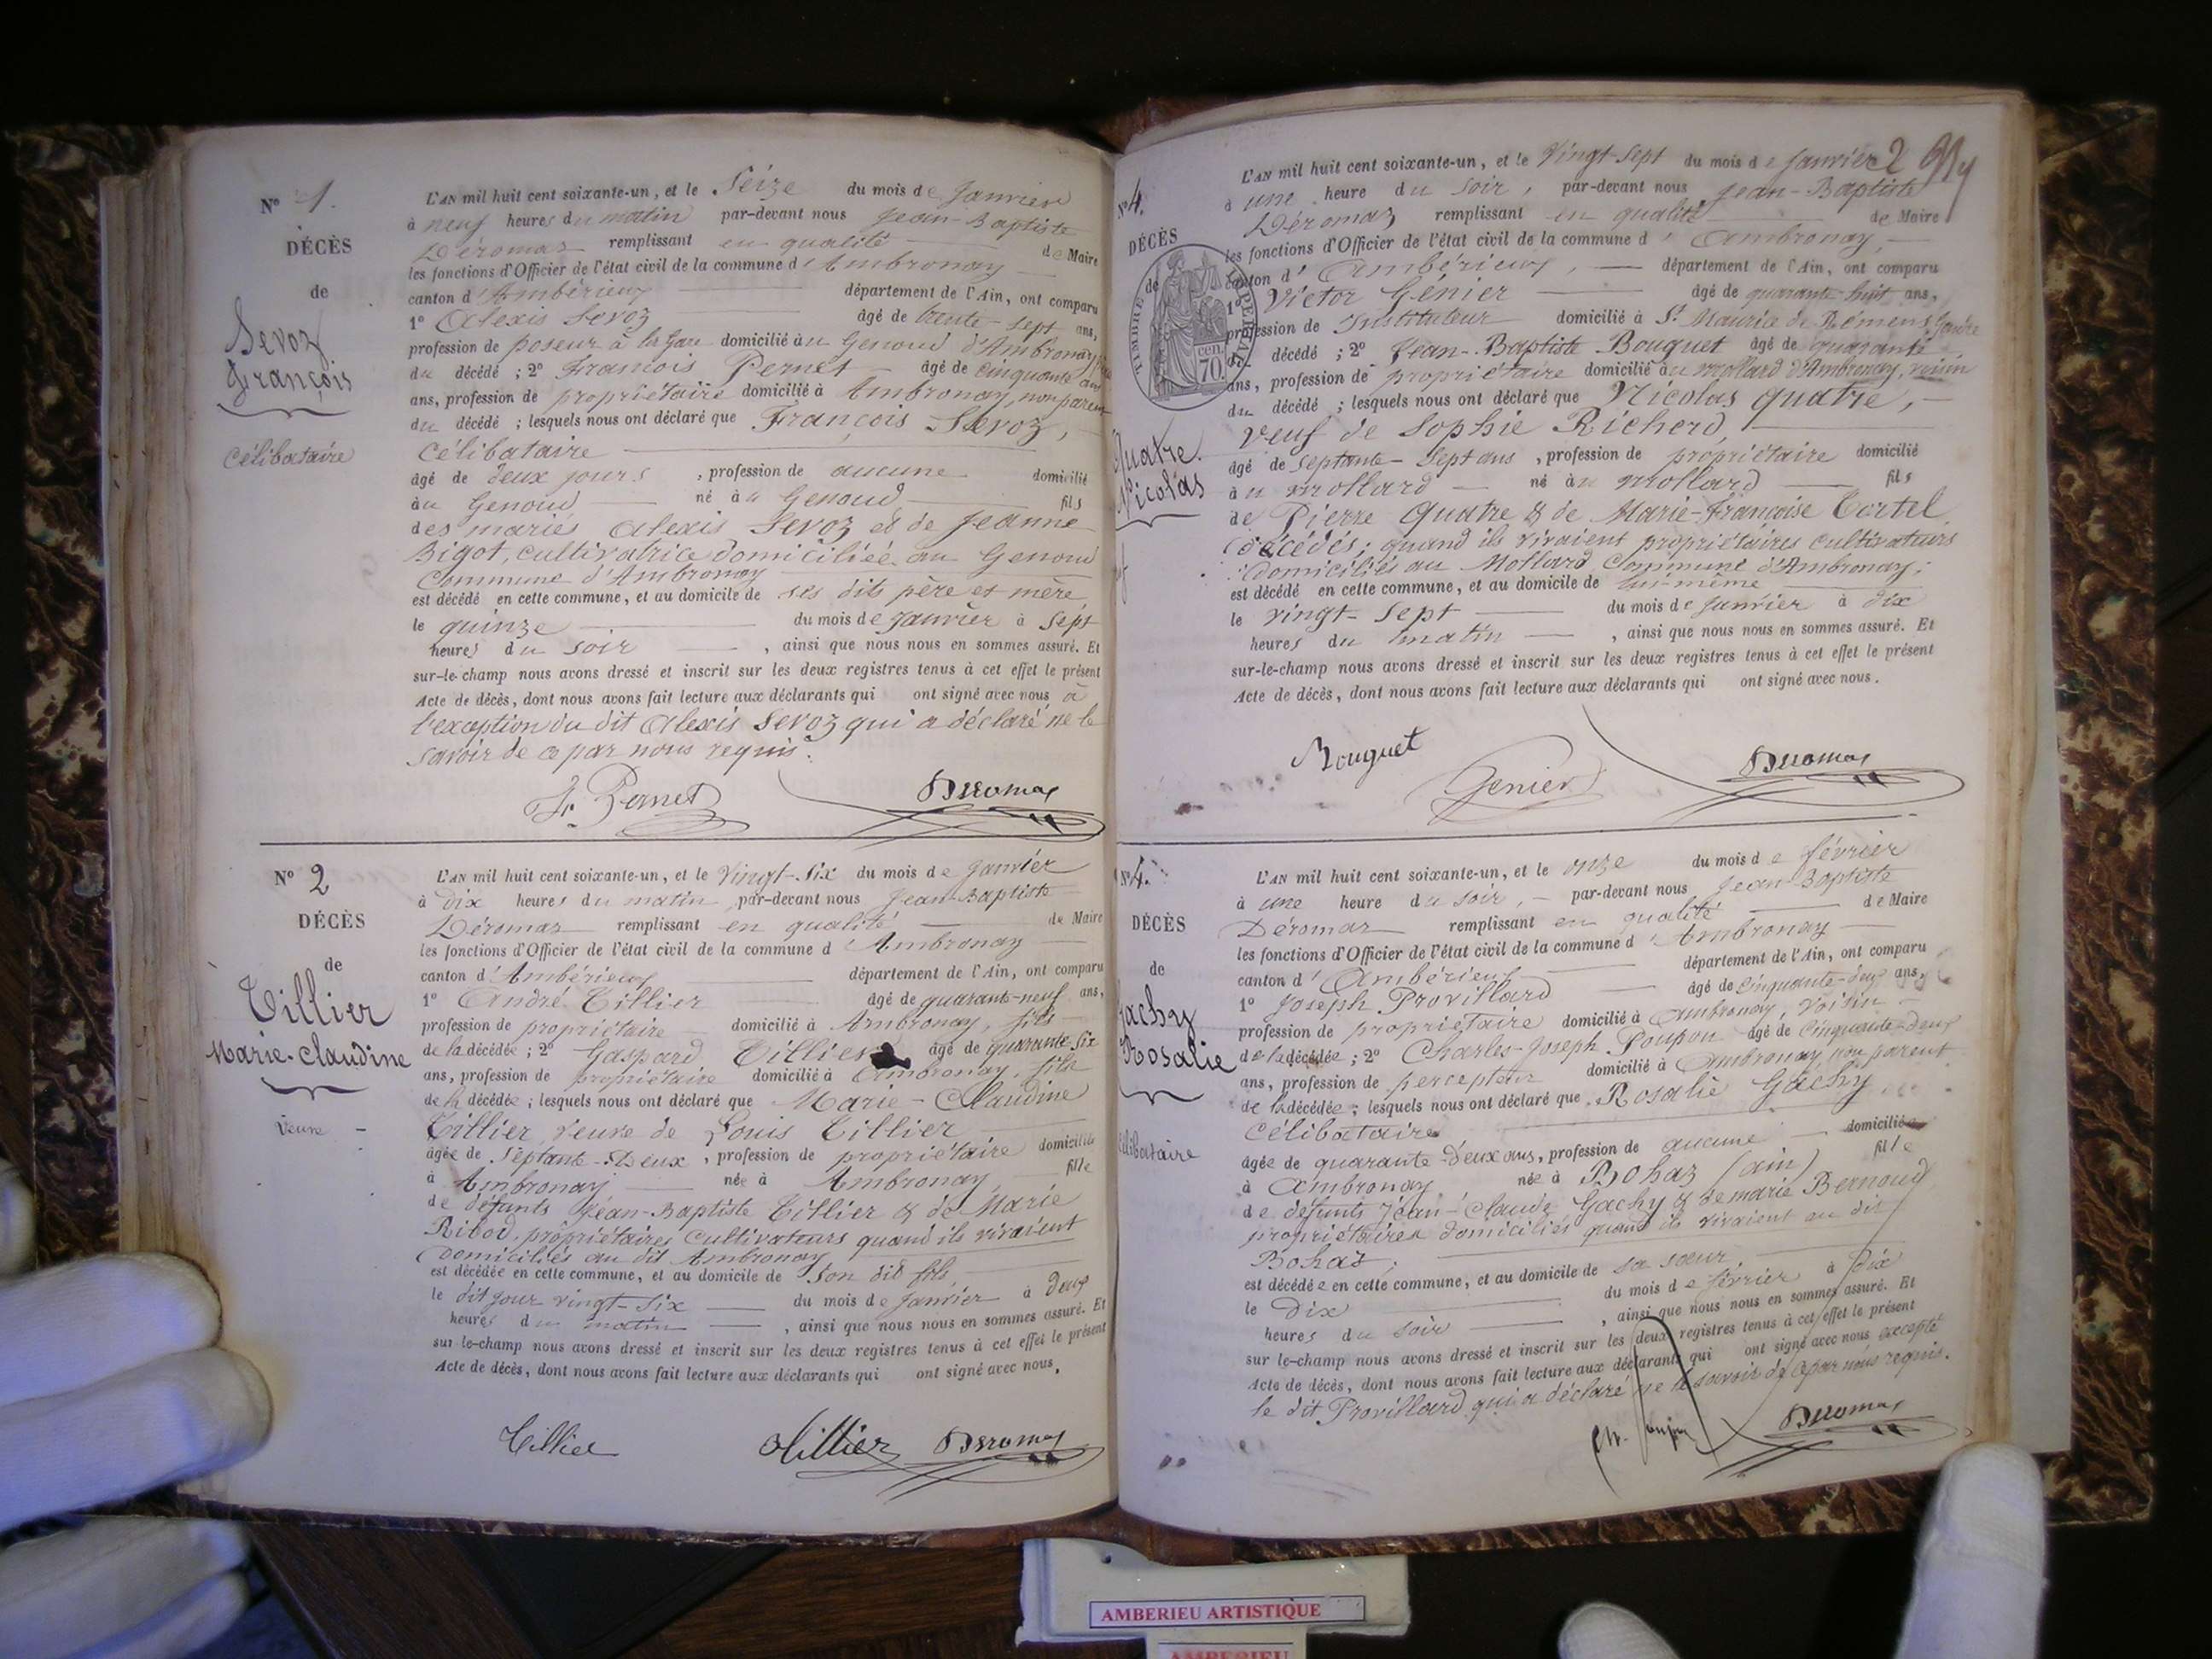 Nº 1.
DÉCÈS
de
Sevoz
François
Célibataire
L'AN mil huit cent soixante-un, et le Seize du mois de Janvier
à neuf heures du matin par-devant nous Jean-Baptiste
Déromas remplissant en qualité de Maire
les fonctions d'Officier de l'état civil de la commune d'Ambronay
canton d'Ambérieux département de l'Ain, ont comparu
1º Alexis Sevoz âgé de trente-sept ans,
profession de poseur à la Gare domicilié au Genoud d'Ambronay, père
du décédé ; 2º François Pernet âgé de cinquante ans
ans, profession de propriétaire domicilié à Ambronay, non parent
du décédé ; lesquels nous ont déclaré que François Sevoz,
célibataire
âgé de deux jours, profession de aucune domicilié
au Genoud né au Genoud fils
des mariés Alexis Sevoz et de Jeanne
Bigot, cultivatrice domiciliée au Genoud
Commune d'Ambronay
est décédé en cette commune, et au domicile de ses dits père et mère
le quinze du mois de Janvier à Sept
heures du soir, ainsi que nous nous en sommes assuré. Et
sur-le-champ nous avons dressé et inscrit sur les deux registres tenus à cet effet le présent
Acte de décès, dont nous avons fait lecture aux déclarants qui ont signé avec nous à
l'exception du dit Alexis Sevoz qui a déclaré ne le
savoir de ce par nous requis.
Fr. Pernet Deromas
Nº 2
DÉCÈS
de
Tillier
Marie-Claudine
Veuve -
L'AN mil huit cent soixante-un, et le Vingt-Six du mois de Janvier
à dix heures du matin par-devant nous Jean-Baptiste
Déromas remplissant en qualité de Maire
les fonctions d'Officier de l'état civil de la commune d'Ambronay
canton d'Ambérieux département de l'Ain, ont comparu
1º André Tillier âgé de quarante-neuf ans,
profession de propriétaire domicilié à Ambronay, fils
de la décédée ; 2º Gaspard Tillier âgé de quarante-six
ans, profession de propriétaire domicilié à Ambronay, fils
de la décédée ; lesquels nous ont déclaré que Marie-Claudine
Tillier, veuve de Louis Tillier
âgée de Septante-Deux, profession de propriétaire domiciliée
à Ambronay née à Ambronay, fille
de défunts Jean-Baptiste Tillier & de Marie
Ribod, propriétaires cultivateurs quand ils vivaient
domiciliés au dit Ambronay
est décédée en cette commune, et au domicile de son dit fils
le dit jour vingt-six du mois de Janvier à deux
heures du matin, ainsi que nous nous en sommes assuré. Et
sur-le-champ nous avons dressé et inscrit sur les deux registres tenus à cet effet le présent
Acte de décès, dont nous avons fait lecture aux déclarants qui ont signé avec nous.
Tillier Tillier Deromas
2
Nº 4.
DÉCÈS
de
Quatre
Nicolas
TIMBRE IMPERIAL
70 cen.
L'AN mil huit cent soixante-un, et le Vingt-Sept du mois de Janvier
à une heure du soir, par-devant nous Jean-Baptiste
Déromas remplissant en qualité de Maire
les fonctions d'Officier de l'état civil de la commune d'Ambronay,
canton d'Ambérieux, département de l'Ain, ont comparu
1º Victor Génier âgé de quarante huit ans,
profession de Instituteur domicilié à St Maurice de Rémens, Gendre
du décédé ; 2º Jean-Baptiste Bouquet âgé de quarante
ans, profession de propriétaire domicilié au Mollard d'Ambronay, voisin
du décédé ; lesquels nous ont déclaré que Nicolas Quatre,
veuf de Sophie Richerd,
âgé de septante-sept ans, profession de propriétaire domicilié
au Mollard né au Mollard fils
de Pierre Quatre & de Marie-Françoise Tortel
décédés ; quand ils vivaient propriétaires cultivateurs
domiciliés au Mollard Commune d'Ambronay ;
est décédé en cette commune, et au domicile de lui-même
le vingt-sept du mois de Janvier à dix
heures du matin, ainsi que nous nous en sommes assuré. Et
sur-le-champ nous avons dressé et inscrit sur les deux registres tenus à cet effet le présent
Acte de décès, dont nous avons fait lecture aux déclarants qui ont signé avec nous.
Bouquet Genier Deromas
Nº 4.
DÉCÈS
de
Gachy
Rosalie
Célibataire
L'AN mil huit cent soixante-un, et le onze du mois de février
à une heure du soir, par-devant nous Jean-Baptiste
Déromas remplissant en qualité de Maire
les fonctions d'Officier de l'état civil de la commune d'Ambronay
canton d'Ambérieux département de l'Ain, ont comparu
1º Joseph Provillard âgé de cinquante-deux ans,
profession de propriétaire domicilié à Ambronay, voisin
de la décédée ; 2º Charles-Joseph Poupon âgé de cinquante-deux
ans, profession de percepteur domicilié à Ambronay, non parent
de la décédée ; lesquels nous ont déclaré que Rosalie Gachy
célibataire
âgée de quarante-deux ans, profession de aucune domiciliée
à Ambronay née à Bohaz (ain) fille
de défunts Jean-Claude Gachy & de marie Bernoud
propriétaires domiciliés quand ils vivaient au dit
Bohaz ;
est décédée en cette commune, et au domicile de sa soeur
le dix du mois de février à dix
heures du soir, ainsi que nous nous en sommes assuré. Et
sur le-champ nous avons dressé et inscrit sur les deux registres tenus à cet effet le présent
Acte de décès, dont nous avons fait lecture aux déclarants qui ont signé avec nous excepté
le dit Provillard qui a déclaré ne le savoir de ce par nous requis.
Deromas
AMBERIEU ARTISTIQUE
AMBERIEU